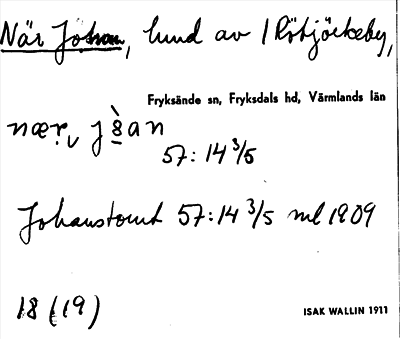 När Johan, lund av 1 Röbjörkeby,
Fryksände sn, Fryksdals hd, Värmlands län
næ̣r, j8̀an
57:14 3/5
Johanstomt 57:14 3/5 ml 1909
18 (19)
ISAK WALLIN 1911